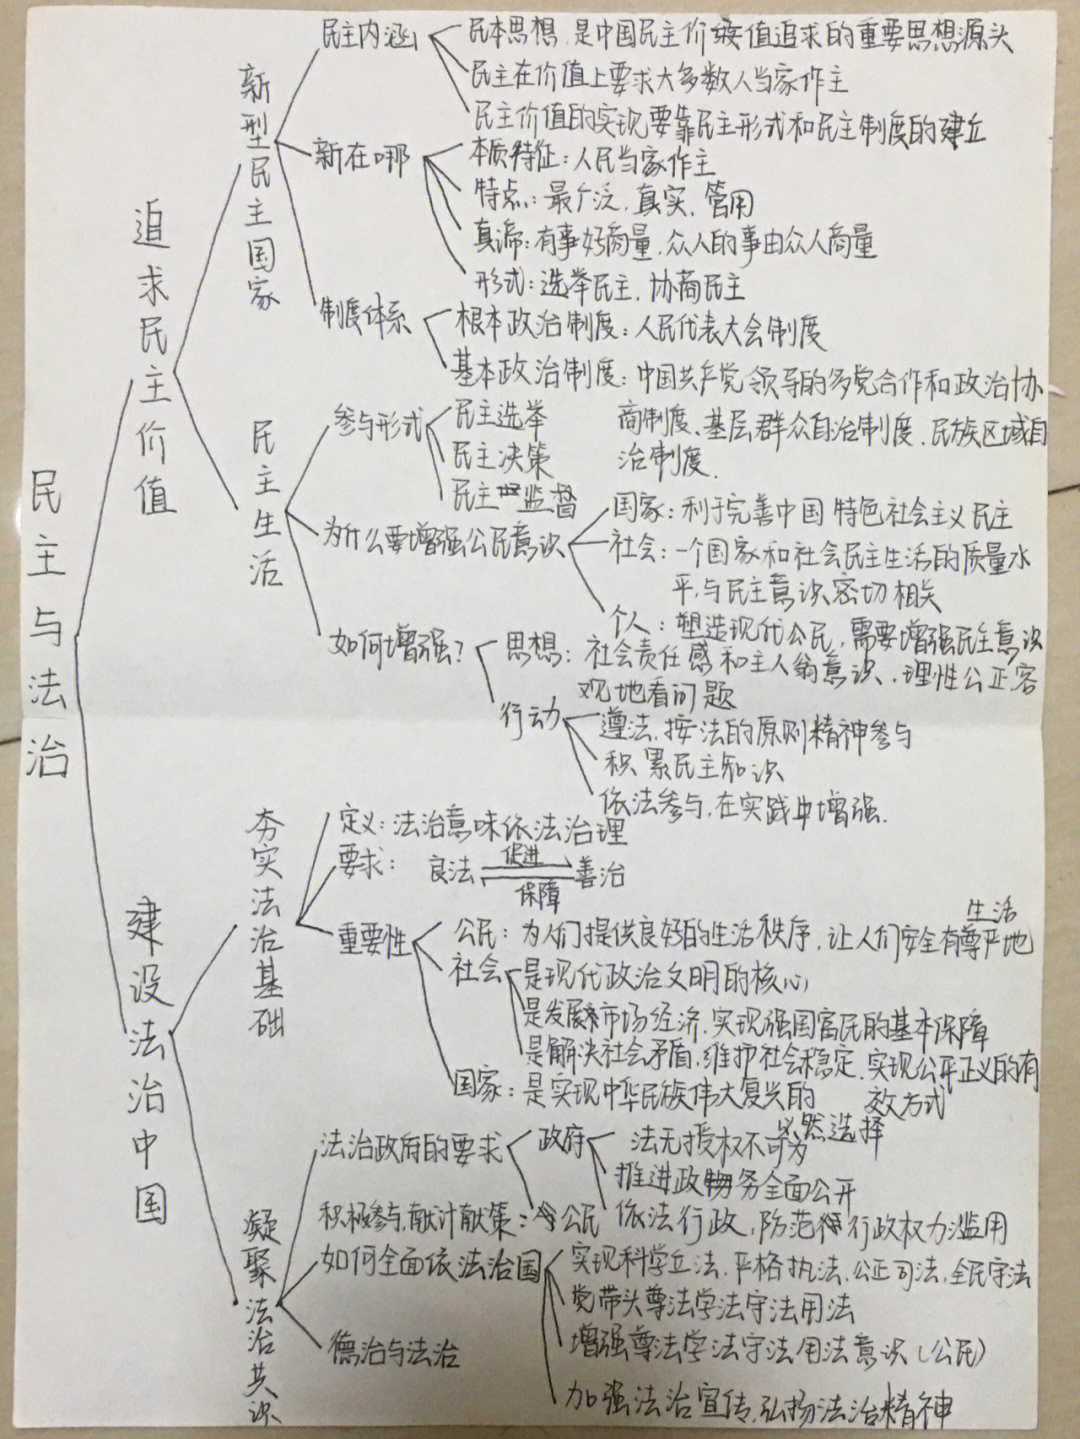 民主与法治
追求民主价值
新型民主国家
民主内涵
民本思想,是中国民主价值追求的重要思想源头
民主在价值上要求大多数人当家作主
民主价值的实现要靠民主形式和民主制度的建立
新在哪
本质特征:人民当家作主
特点:最广泛、真实、管用
真谛:有事好商量,众人的事由众人商量
形式:选举民主、协商民主
制度体系
根本政治制度:人民代表大会制度
基本政治制度:中国共产党领导的多党合作和政治协
商制度、基层群众自治制度、民族区域自
治制度.
民主生活
参与形式
民主选举
民主决策
民主监督
为什么要增强公民意识
国家:利于完善中国特色社会主义民主
社会:一个国家和社会民主生活的质量水
平,与民主意识密切相关
个人:塑造现代公民,需要增强民主意识
如何增强?
思想:社会责任感和主人翁意识、理性公正客
观地看问题
行动
遵法,按法的原则精神参与
积累民主知识
依法参与,在实践中增强.
建设法治中国
夯实法治基础
定义:法治意味依法治理
要求:良法 促进 善治
保障
重要性
生活
公民:为人们提供良好的生活秩序,让人们安全有尊严地
社会
是现代政治文明的核心
是发展市场经济、实现强国富民的基本保障
是解决社会矛盾,维护社会稳定,实现公平正义的有
效方式
国家:是实现中华民族伟大复兴的
必然选择
凝聚法治共识
法治政府的要求
政府
法无授权不可为
推进政务全面公开
依法行政,防范行政权力滥用
积极参与,献计献策:公民
如何全面依法治国
实现科学立法、严格执法、公正司法、全民守法
党带头尊法学法守法用法
增强尊法学法守法用法意识(公民)
加强法治宣传,弘扬法治精神
德治与法治